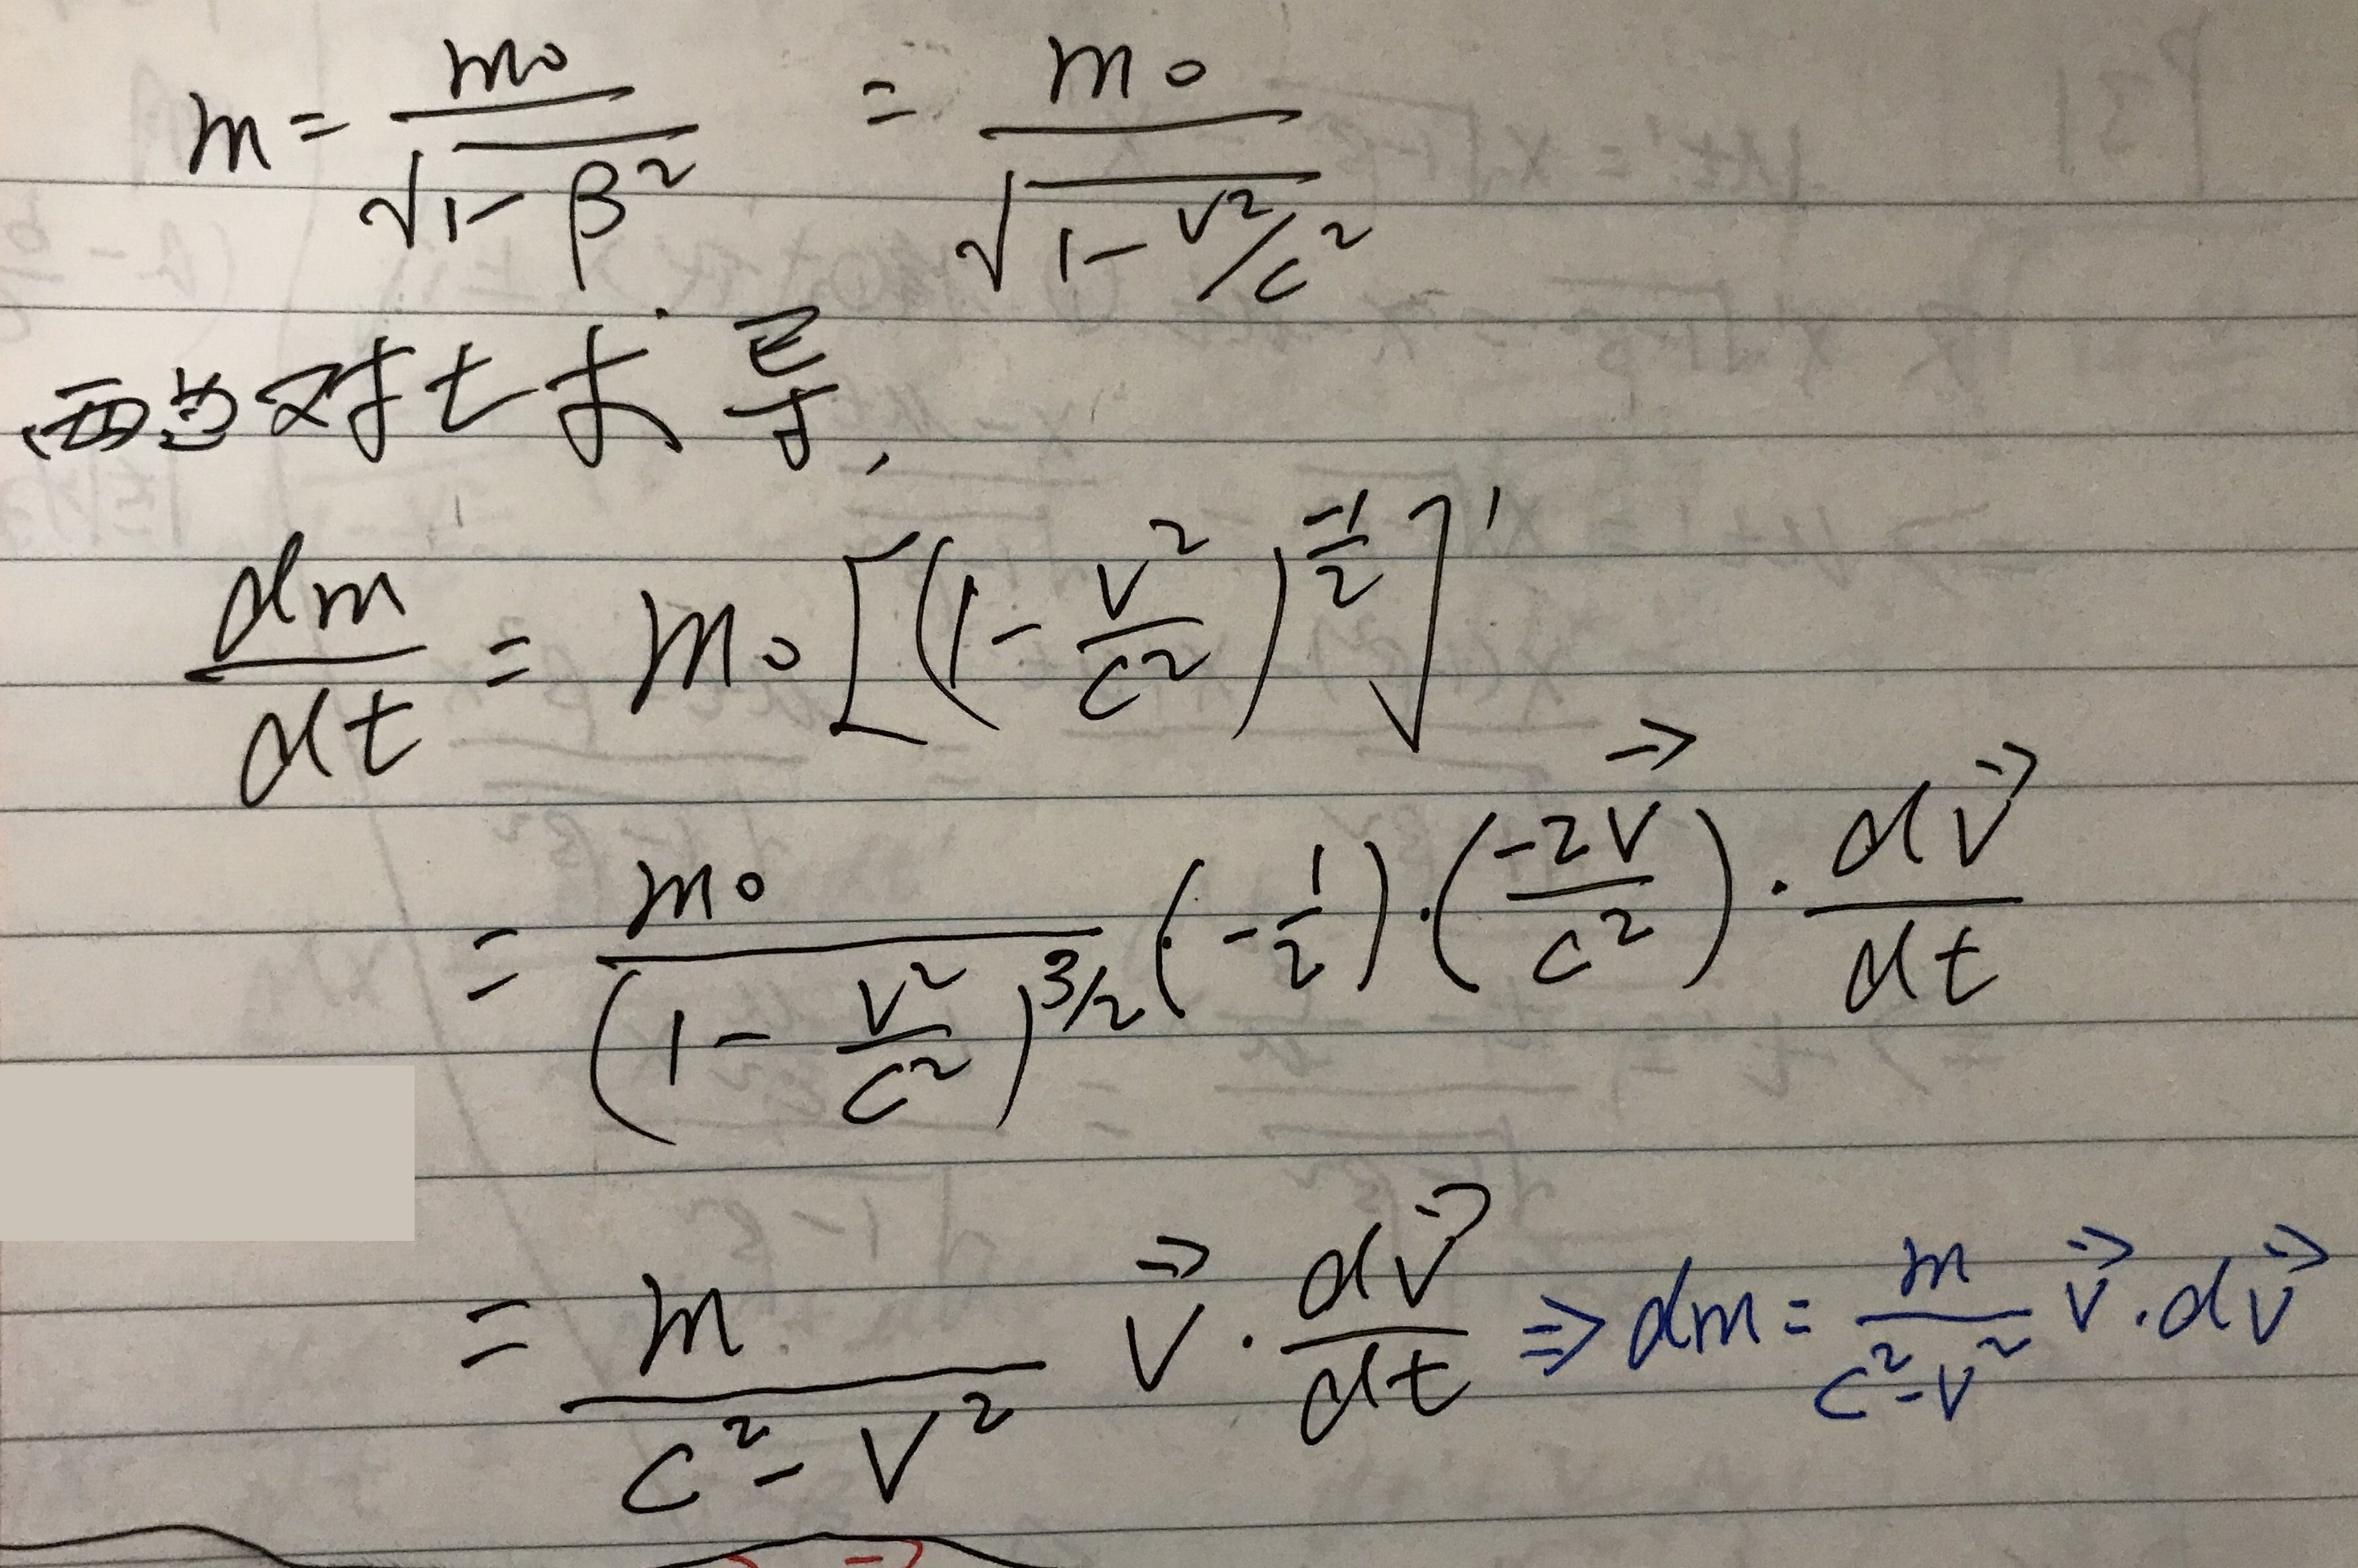 m = m₀/√(1-β²) = m₀/√(1-v²/c²)
两边对t求导,
dm/dt = m₀[(1-v²/c²)^(-1/2)]'
= m₀/(1-v²/c²)^(3/2) (-1/2)·(-2v⃗/c²)·dv⃗/dt
= m/(c²-v²) v⃗·dv⃗/dt ⇒ dm = m/(c²-v²) v⃗·dv⃗